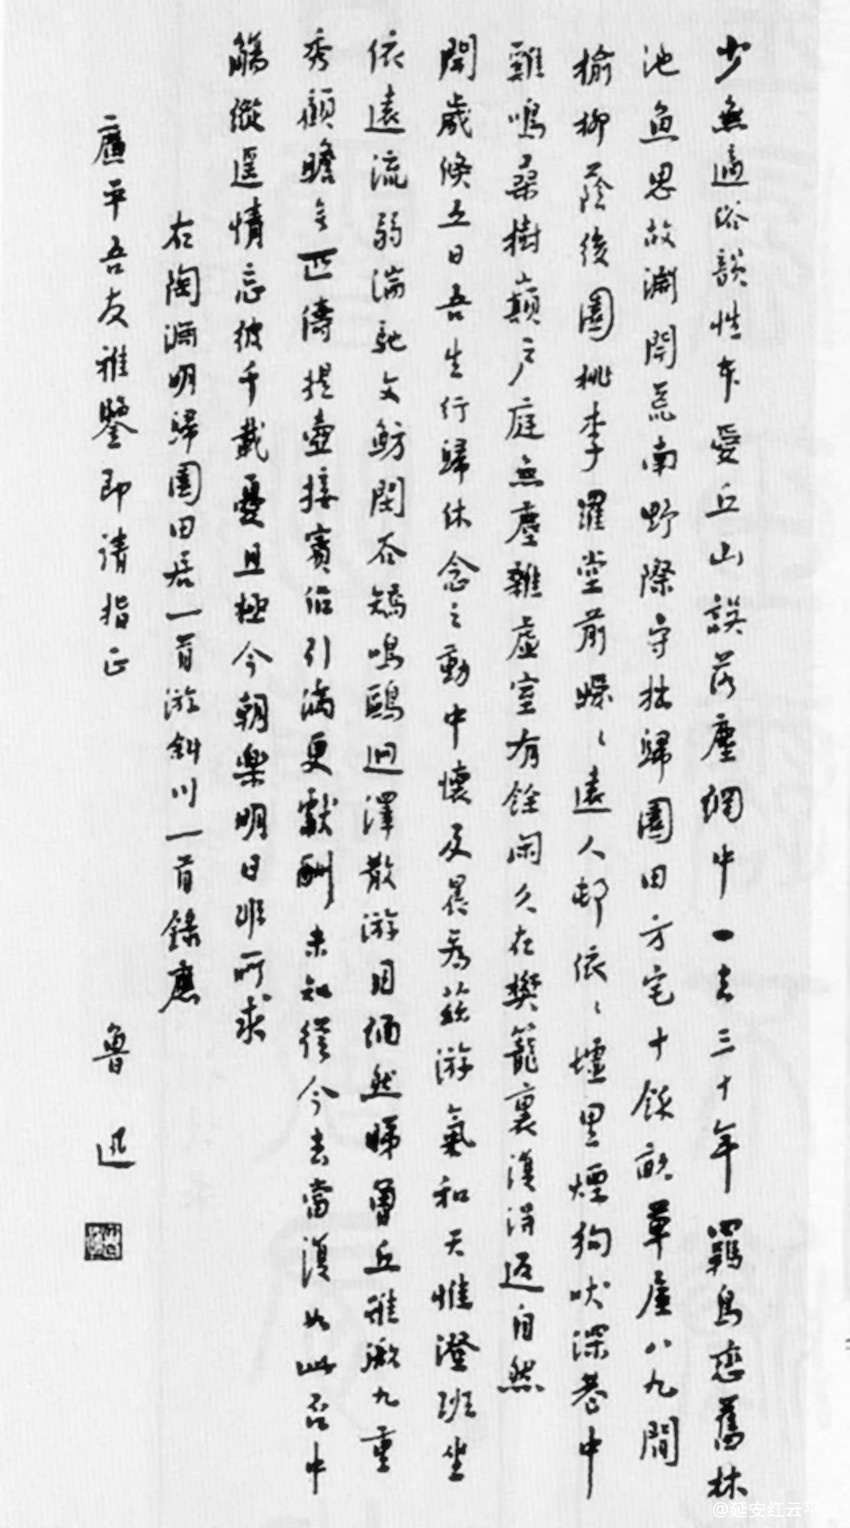 少無適俗韻性本愛丘山誤落塵網中一去三十年羈鳥戀舊林
池魚思故淵開荒南野際守拙歸園田方宅十餘畝草屋八九間
榆柳蔭後園桃李羅堂前曖〻遠人邨依〻墟里煙狗吠深巷中
雞鳴桑樹巔戶庭無塵雜虛室有餘閑久在樊籠裏復得返自然
開歲倏五日吾生行歸休念之動中懷及晨為茲游氣和天惟澄班坐
依遠流弱湍馳文魴閑谷矯鳴鷗迥澤散游目緬然睇曾丘雖微九重
秀顧瞻無匹儔提壺接賓侶引滿更獻酬未知從今去當復如此否中
觴縱遥情忘彼千載憂且極今朝樂明日非所求
右陶淵明歸園田居一首游斜川一首錄應
廉平吾友雅鑒即請指正
魯迅
@延安红云